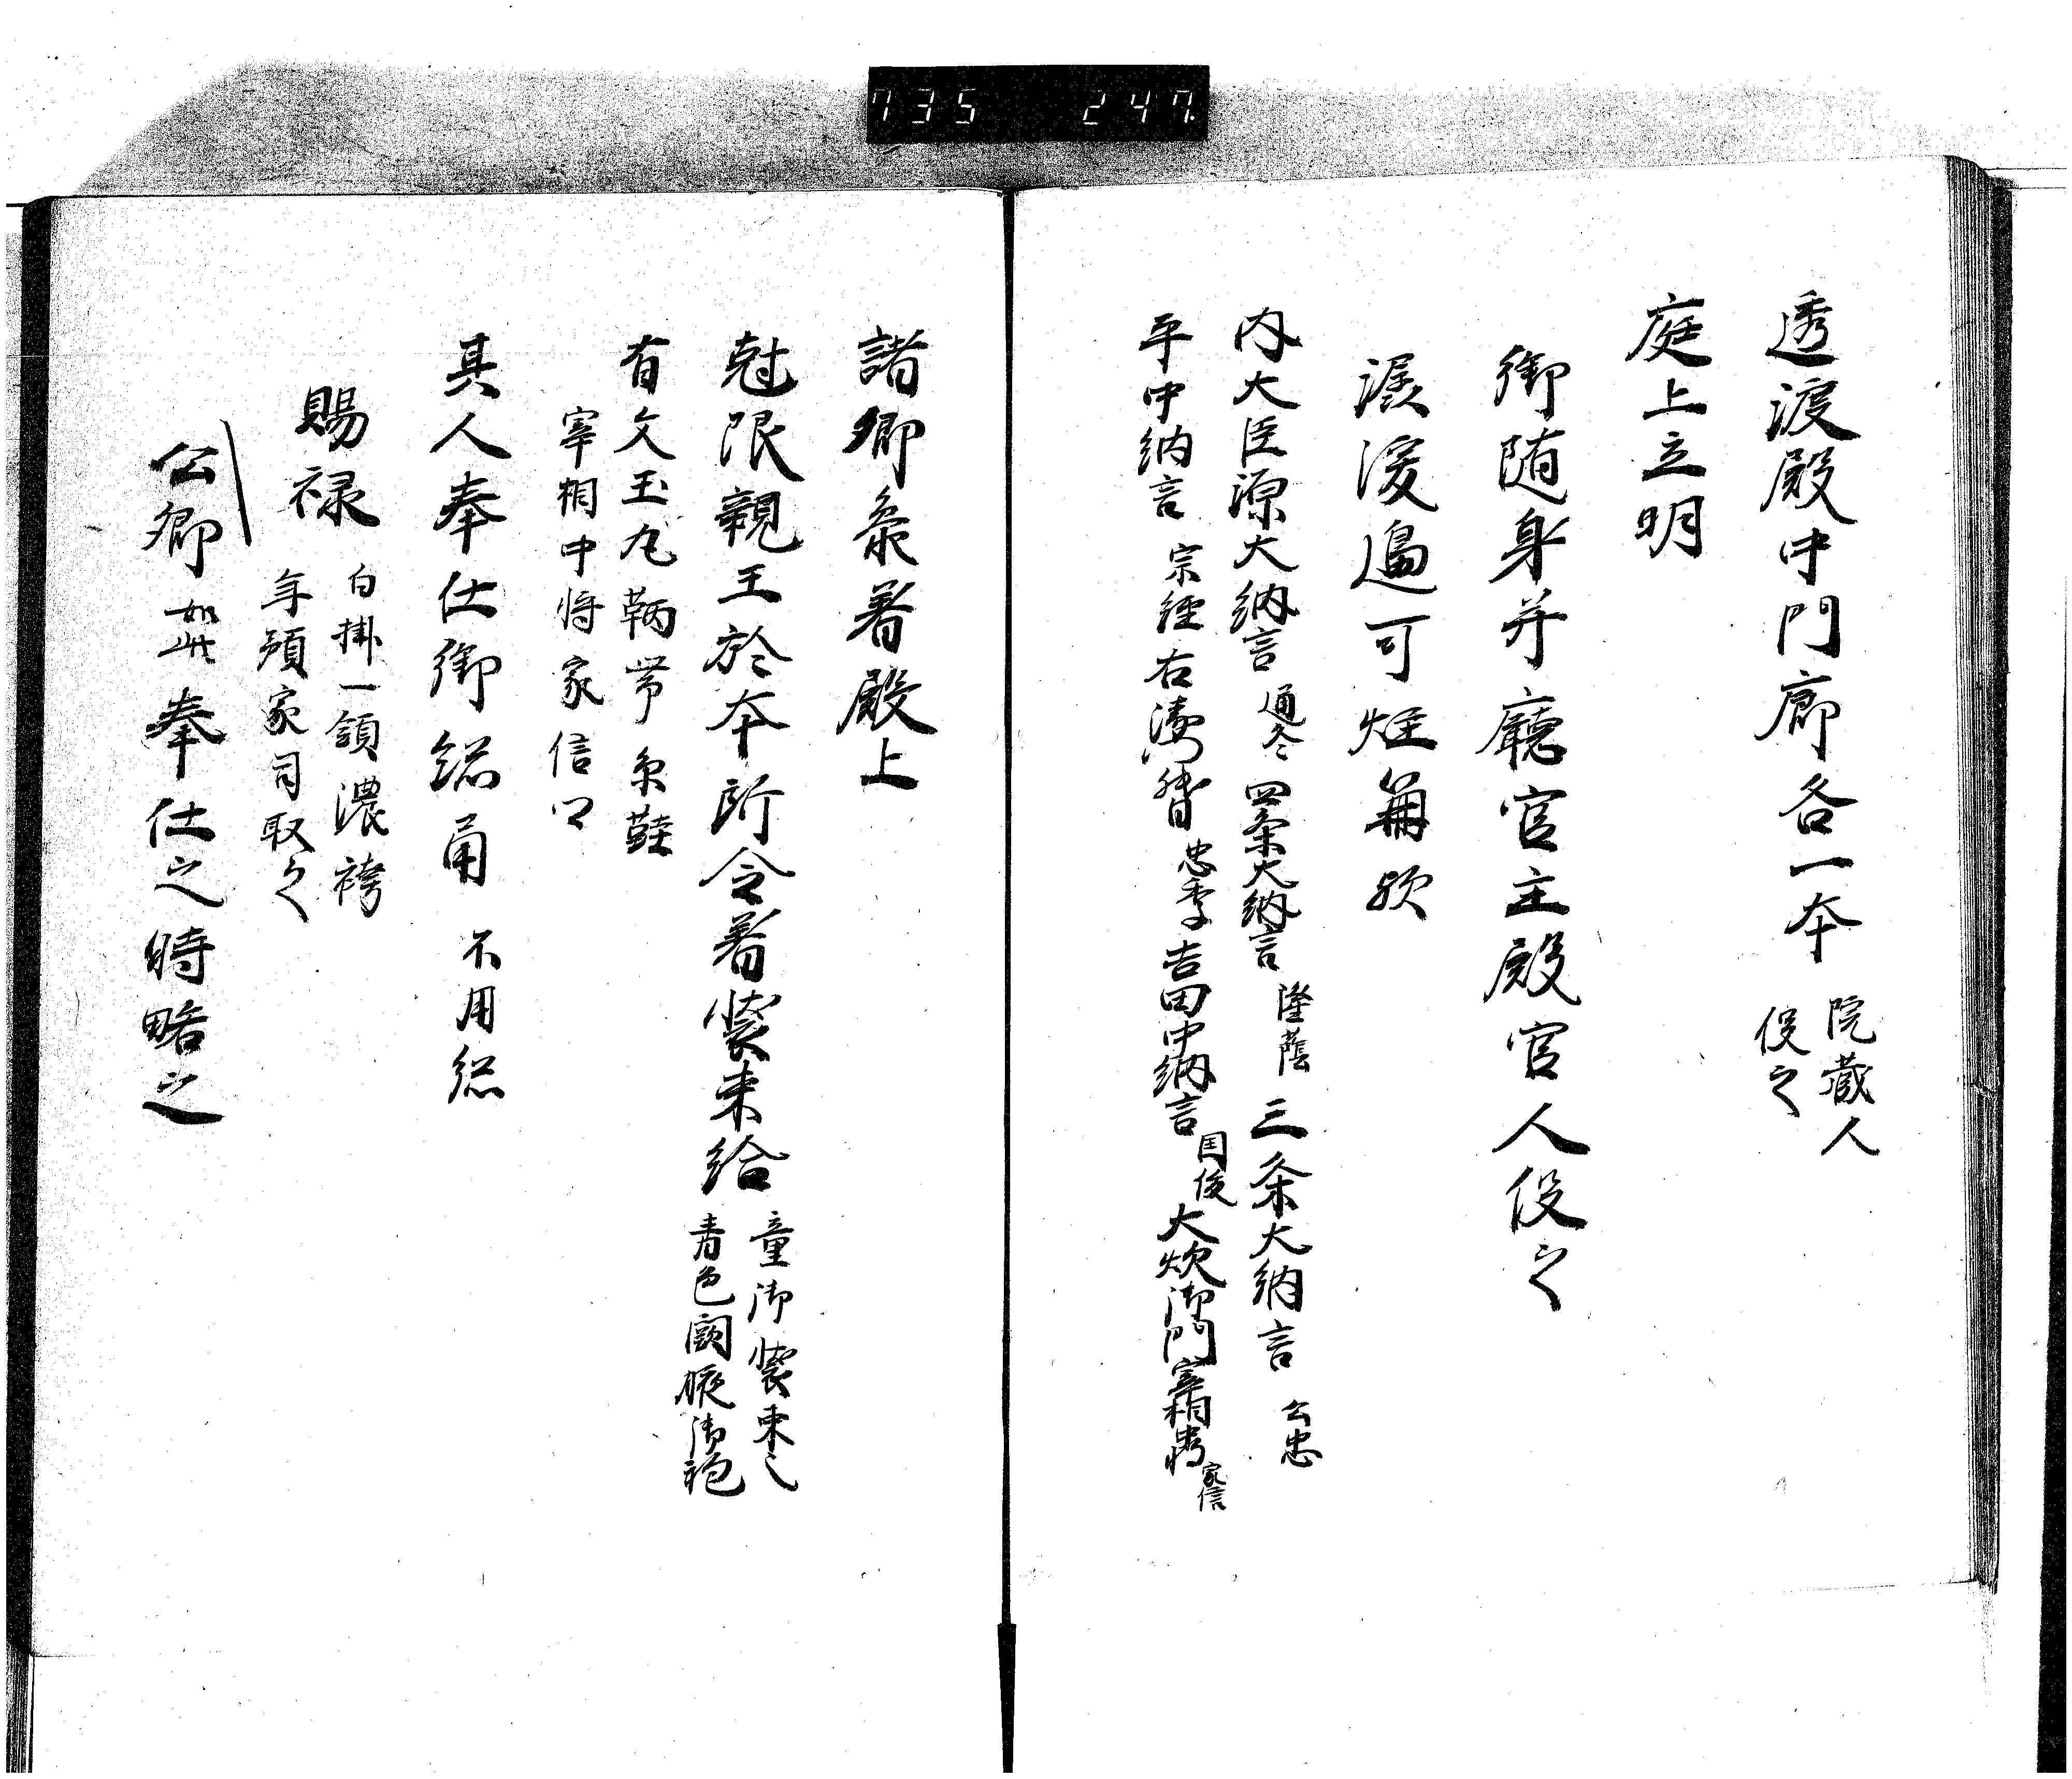 735 247
透渡殿中門廊各一本 院蔵人
役之
庭上立明
御随身并廰官主殿官人役之
深更過可炷無歟
内大臣源大納言 通冬 四条大納言 隆蔭 三条大納言 公忠
平中納言 宗経 右衛門督 忠季 吉田中納言 国俊 大炊御門宰相中将 家信
諸卿参着殿上
尅限親王於本所令着装束給 童御装束之
青色闕腋御袍
有文玉丸鞆帯糸鞋
宰相中将家信卿
其人奉仕御総角 不用総
賜禄 白掛一領濃袴
年預家司取之
公卿 如此 奉仕之時略之